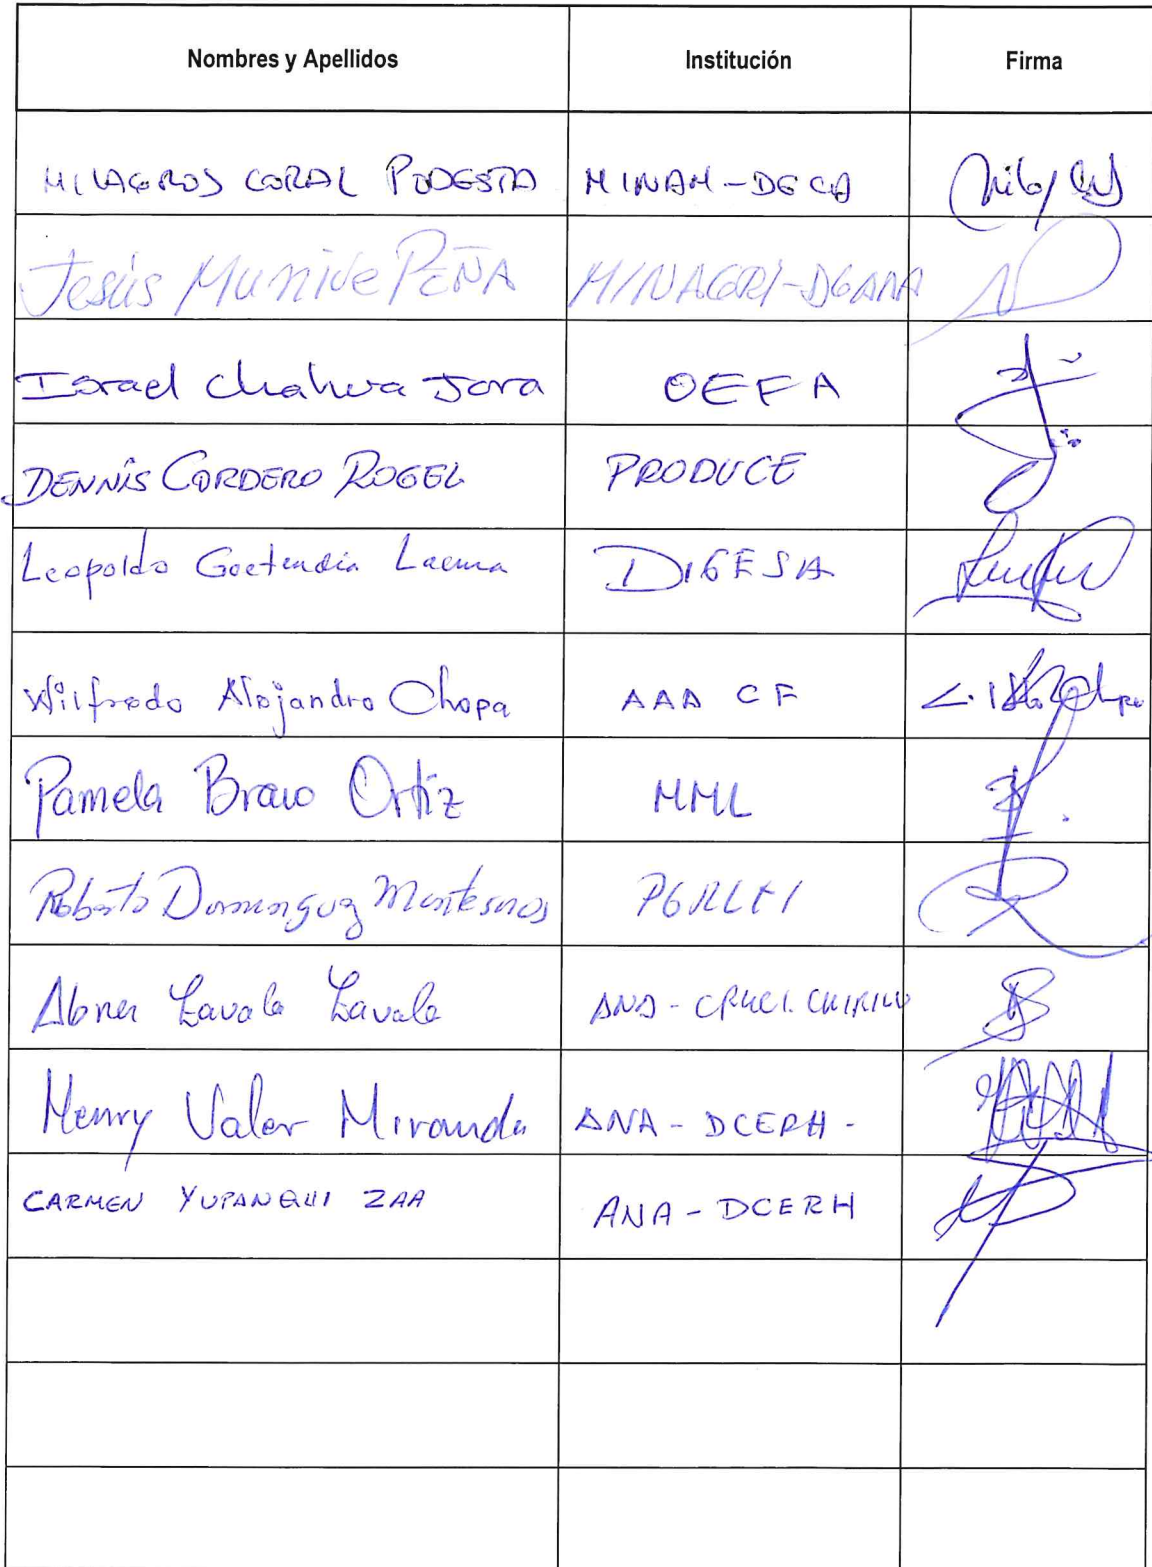 Nombres y Apellidos Institución Firma
MILAGROS CORAL PODESTA MINAM-DGCA
Jesús Munive PEÑA MINAGRI-DGAAA
Israel Chahua Jara OEFA
DENNIS CORDERO ROGEL PRODUCE
Leopoldo DIGESA
Wilfredo Alejandro Chopa AAA CF
Pamela Bravo Ortiz MML
Roberto Dominguez Montesinos
Abner Zavala Zavala ANA -
Henry Valer Miranda ANA - DCERH -
CARMEN YUPANQUI ZAA ANA - DCERH